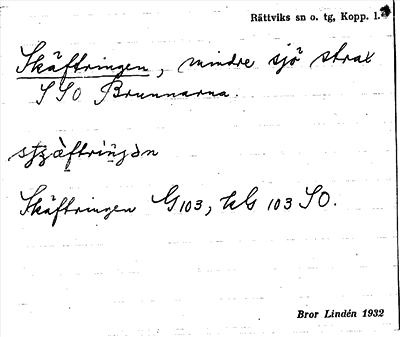 Rättviks sn o. tg, Kopp. l.
Skäftringen, mindre sjö strax
SSO Brunnarna.
Skäftringen G103, kG 103 SO.
Bror Lindén 1932